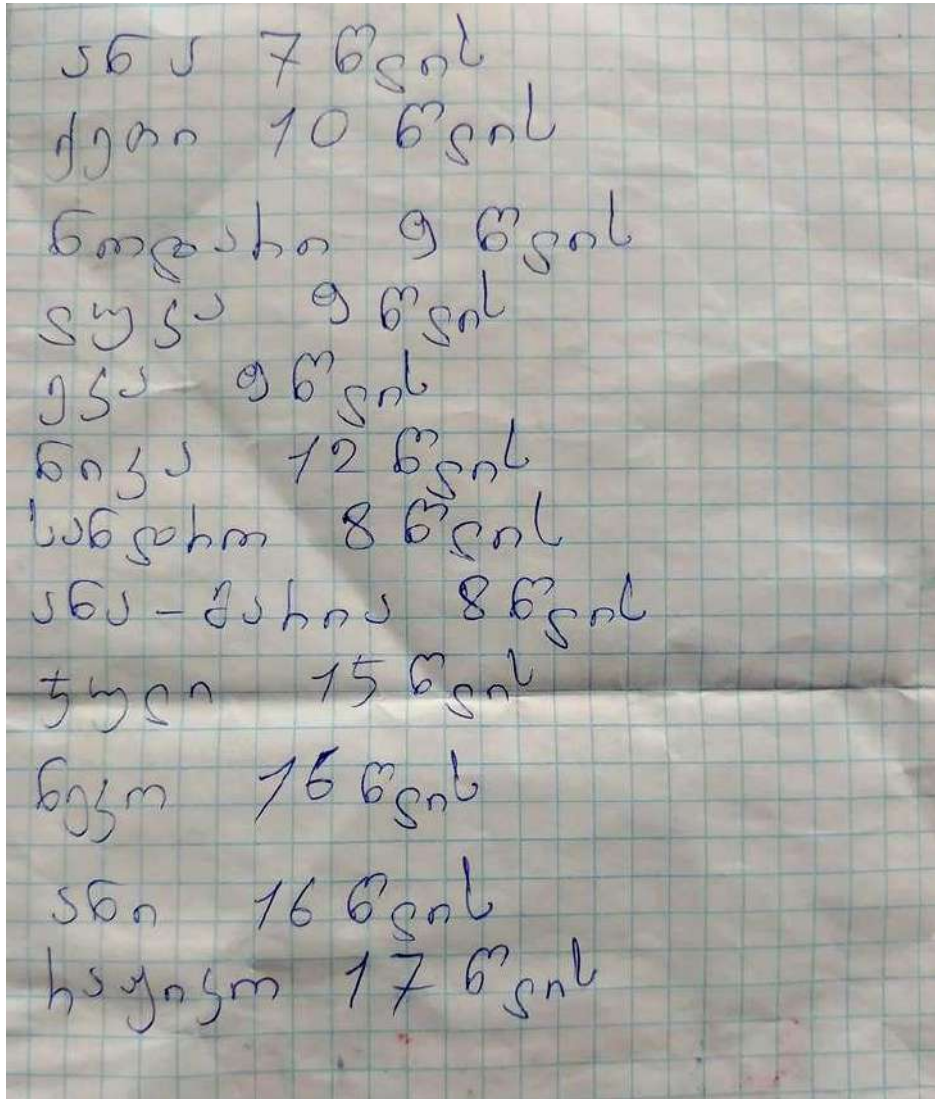 ანა 7 წლის
ქეთი 10 წლის
ნოდარი 9 წლის
ლუკა 9 წლის
ეკა 9 წლის
ნიკა 12 წლის
სანდრო 8 წლის
ანა-მარია 8 წლის
ჯული 15 წლის
ნეკო 16 წლის
ანი 16 წლის
რაფიკო 17 წლის